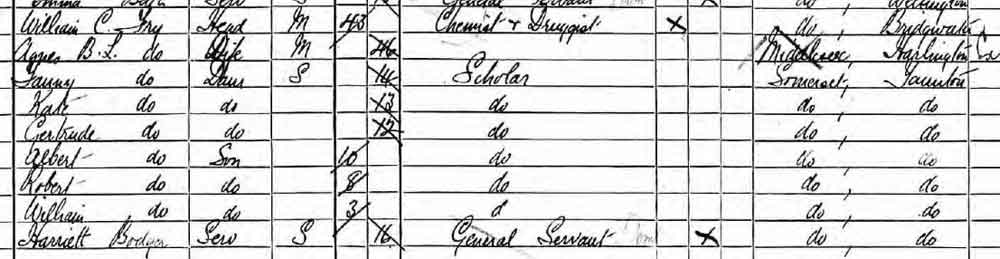 Serv S General Servant do, Wellington
William C. Fry Head M 43 Chemist & Druggist X do, Bridgwater
Agnes B. L. do Wife M 46 Middlesex, Harlington
Fanny do Daur S 14 Scholar Somerset, Taunton
Kate do do 13 do do, do
Gertrude do do 12 do do, do
Albert do Son 10 do do, do
Robert do do 8 do do, do
William, do do 3 d do, do
Harriett Serv S 16 General Servant X do, do